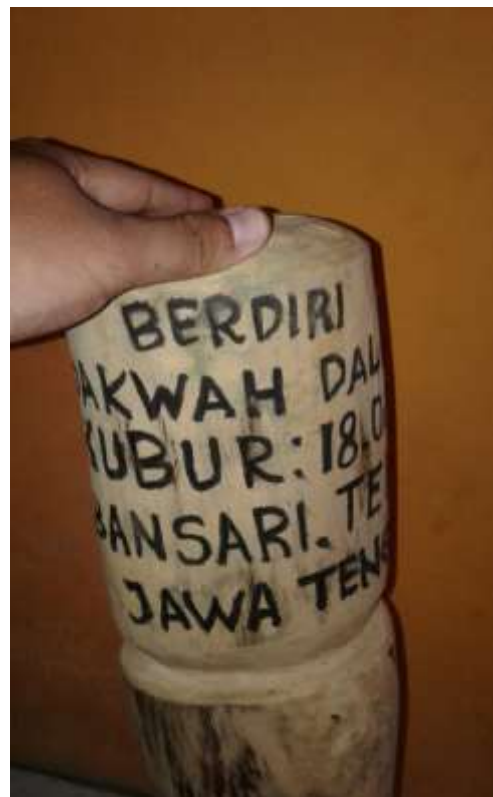 BERDIRI
AKWAH DAL
KUBUR: 18.0
BANSARI. TE
JAWA TENG